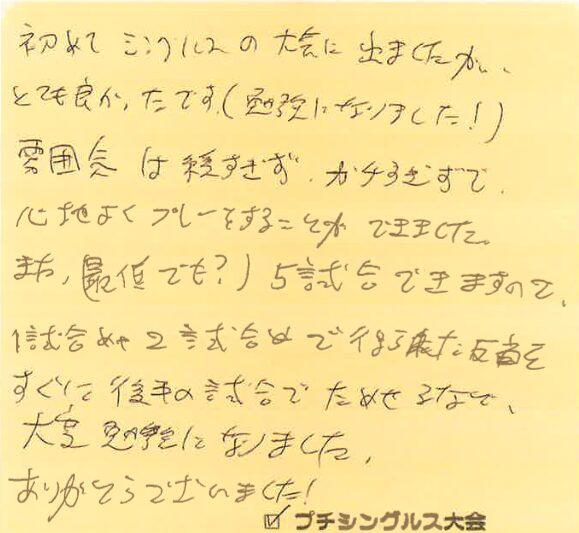 初めて シングルスの大会に出ましたが、
とても良かったです。(勉強になりました!)
雰囲気は緩すぎず、ガチすぎずで、
心地よくプレーをすることができました。
また、(最低でも?)5試合できますので、
1試合めや2試合めで得られた反省を
すぐに後半の試合でためせるなど、
大変勉強になりました。
ありがとうございました!
☑ プチシングルス大会